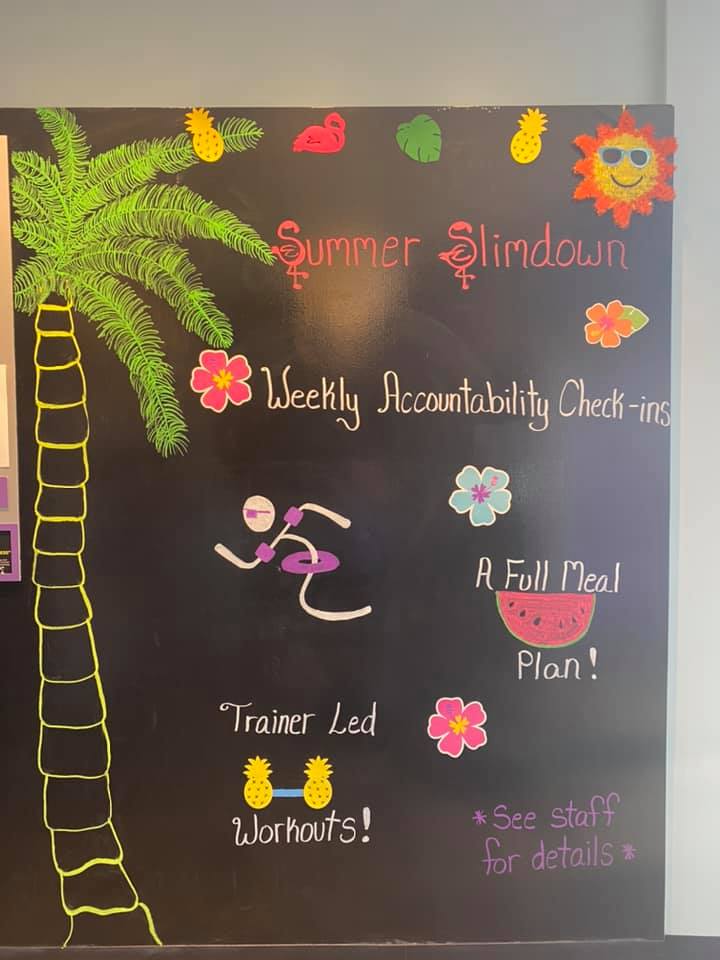 Summer Slimdown
Weekly Accountability Check-ins
A Full Meal
Plan!
Trainer Led
Workouts!
*See staff
for details*